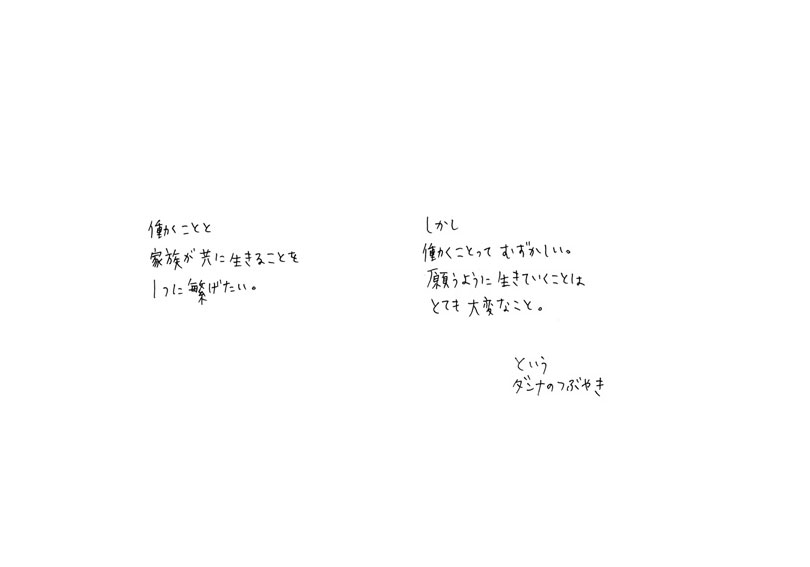 働くことと
家族が共に生きることを
1つに繁げたい。
しかし
働くことって むずかしい。
願うように生きていくことは
とても 大変なこと。
という
ダンナのつぶやき